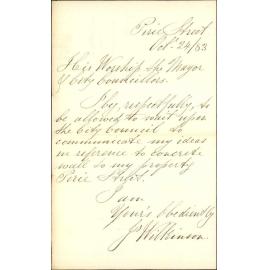 Pirie Street
Oct 24/83
His Worship the Mayor
& City Councillors.
I beg respectfully, to
be allowed to wait upon
the City Council to
communicate my ideas
in reference to concrete
wall to my property
Pirie Street.
I am
Yours Obediently
J Wilkinson